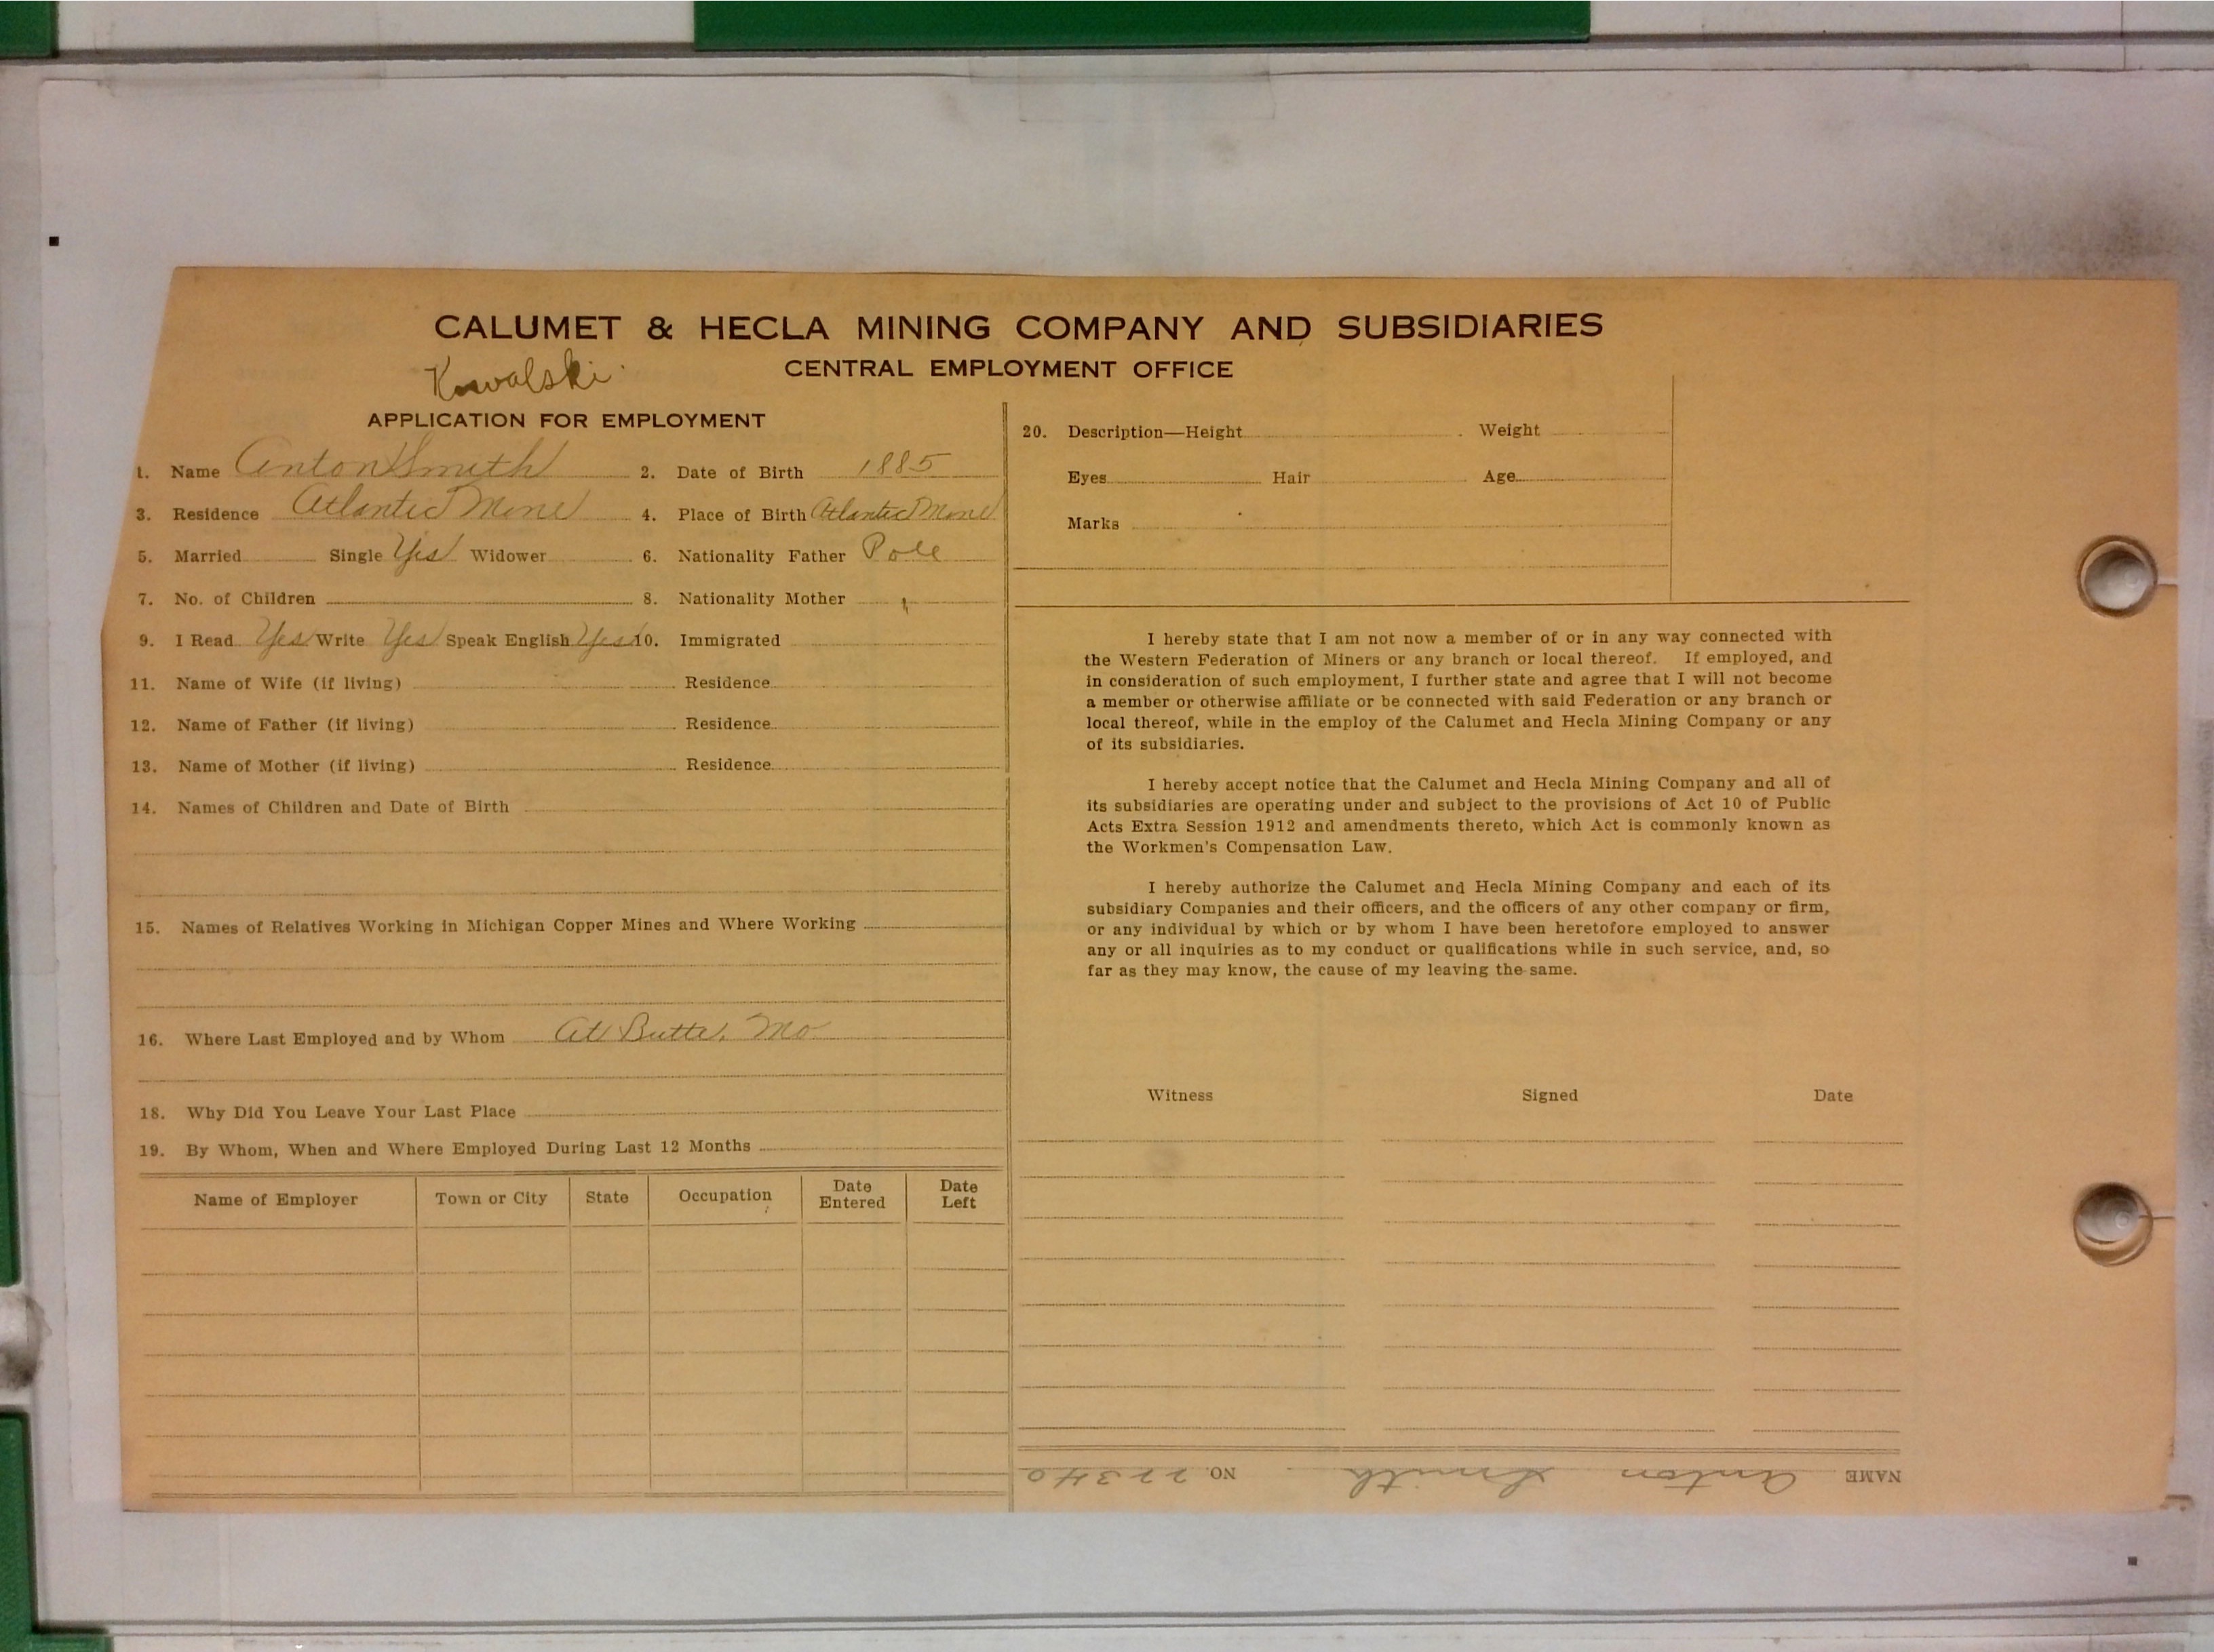 CALUMET & HECLA MINING COMPANY AND SUBSIDIARIES
CENTRAL EMPLOYMENT OFFICE
Kowalski
APPLICATION FOR EMPLOYMENT
1. Name Anton Smith 2. Date of Birth 1885
3. Residence Atlantic Mine 4. Place of Birth Atlantic Mine
5. Married Single Yes Widower 6. Nationality Father Pole
7. No. of Children 8. Nationality Mother "
9. I Read Yes Write Yes Speak English Yes 10. Immigrated
11. Name of Wife (if living) Residence
12. Name of Father (if living) Residence
13. Name of Mother (if living) Residence
14. Names of Children and Date of Birth
15. Names of Relatives Working in Michigan Copper Mines and Where Working
16. Where Last Employed and by Whom At Butte, Mo
18. Why Did You Leave Your Last Place
19. By Whom, When and Where Employed During Last 12 Months
Name of Employer Town or City State Occupation Date Entered Date Left
20. Description—Height Weight
Eyes Hair Age
Marks
I hereby state that I am not now a member of or in any way connected with
the Western Federation of Miners or any branch or local thereof. If employed, and
in consideration of such employment, I further state and agree that I will not become
a member or otherwise affiliate or be connected with said Federation or any branch or
local thereof, while in the employ of the Calumet and Hecla Mining Company or any
of its subsidiaries.
I hereby accept notice that the Calumet and Hecla Mining Company and all of
its subsidiaries are operating under and subject to the provisions of Act 10 of Public
Acts Extra Session 1912 and amendments thereto, which Act is commonly known as
the Workmen's Compensation Law.
I hereby authorize the Calumet and Hecla Mining Company and each of its
subsidiary Companies and their officers, and the officers of any other company or firm,
or any individual by which or by whom I have been heretofore employed to answer
any or all inquiries as to my conduct or qualifications while in such service, and, so
far as they may know, the cause of my leaving the same.
Witness Signed Date
NAME Anton Smith NO. 22340